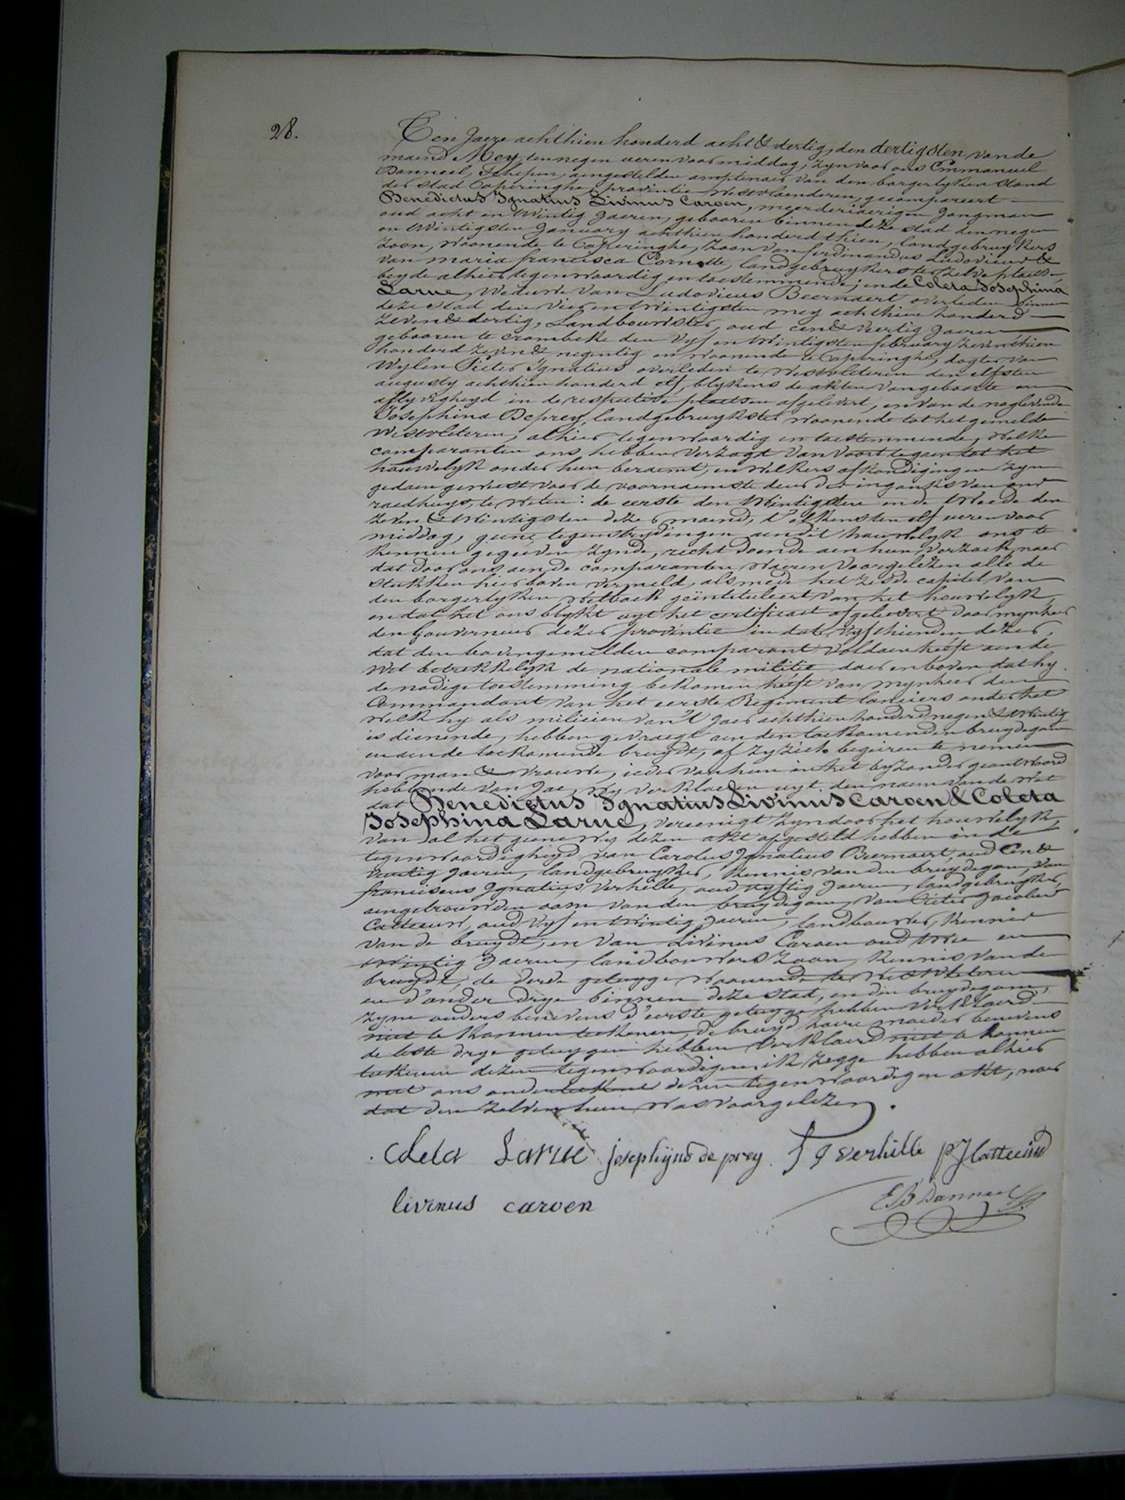 28.
Ten Jaere achthien honderd acht & dertig, den dertigsten van de
maend Mey, ten negen ueren voor middag, zyn voor ons Emmanuel
Danneel, Schepen, aengestelden amptenaer van den borgerlyken stand
der stad Poperinghe, provintie Westvlaenderen, gecompareert
Benedictus Ignatius Livinus Caroen, meerderjaerigen Jongman
oud acht en twintig Jaeren, gebooren binnen deze stad den negen
en twintigsten January achthien honderd thien, landgebruykers
zoon, woonende te Poperinghe, zoon van ferdinandus Ludovicus &
van maria francisca Cornette, landgebruykers ter zelve plaets,
beyde alhier tegenwoordig en toestemmende; ende Coleta Josephina
Larue, Weduwe van Ludovicus Beernaert, overleden binnen
deze stad den vier en twintigsten mey achthien honderd
zeven & dertig, Landbouwster, oud een & veertig Jaeren
gebooren te Crombeke den vyf en twintigsten february zeventhien
honderd zeven & negentig en woonende te Poperinghe, dogter van
Wylen Pieter Ignatius overleden te Westvleteren den elfsten
augusty achthien honderd elf, blykens de akten van geboorte en
aflyvigheyd in de respective plaetsen afgelevert, en van de naglevende
Josephina Deprey, landgebruykster woonende tot het gemelde
Westvleteren, alhier tegenwoordig en toestemmende, welke
comparanten ons hebben verzogt van voort te gaen tot het
houwelyk onder hun beraemt, en welkers afkondigingen zyn
gedaen geweest voor de voornaemste deur der ingankt van ons
raedhuys, te weten: de eerste den twintigsten en de tweede den
zeven & twintigsten dezer maend, t'elkensten elf ueren voor
middag, geene tegenstrydingen aen dit houwelyk ons te
kennen gegeeven zynde, recht doende aen hun verzoek, naer
dat door ons aen de comparanten waeren voorgelezen alle de
stukken hier boven vermeld, alsmede het zesde capitel van
den borgerlyken wetboek geintituleert van het houwelyk,
en dat het ons blykt uyt het certificaet afgelevert door mynheer
den Gouverneur dezer provintie in date vyfthienden dezer,
dat den bovengemelden comparant voldaen heeft aen de
wet betrekkelyk de nationale militie, daer en boven dat hy
de nodige toestemming bekomen heeft van mynheer den
Commandant van het eerste Regiment lanciers onder het
welk hy als milicien van 't Jaer achthien honderd negen & twintig
is dienende, hebben gevraegt aen den toekomenden bruydegom
en aen de toekomende bruydt, of zy ziek begeiren te nemen
voor man & vrouwe, ieder van hun in het byzonder geantwoord
hebbende van Jae, wy verklaeren uyt den naem van de wet
dat Benedictus Ignatius Livinus Caroen & Coleta
Josephina Larue, vereenigt zyn door het houwelyk,
van al het gene wy dezen akt opgesteld hebben in de
tegenwoordigheyd van Carolus Ignatius Beernaert, oud een &
veertig Jaeren, landgebruyker, kennis van den bruydegom, van
franciscus Ignatius Verhille, oud vyftig Jaeren, landgebruyker,
aengetrouwden oom van den bruydegom, van Pieter Jacobus
Catteeuw, oud vyf en twintig Jaeren, landbouwer, kennis
van de bruydt, en van Livinus Caroen oud twee en
twintig Jaeren, landbouwers zoon, kennis van de
bruydt, de derde getuyge woonende te Westvleteren
en d'ander drye binnen deze stad, en den bruydegom,
zyne ouders benevens d'eerste getuyge hebben verklaerd
niet te konnen teekenen, de bruyd haere moeder benevens
de leste drye getuygen hebben verklaerd niet te konnen
teekenen dezen tegenwoordigen, ik zegge hebben alhier
met ons onderteekent dezen tegenwoordigen akt, naer
dat den zelven hun was voorgelezen.
Coleta Larue josephyne de prey F J verhille P J Catteeuw
livinus caroen
E B Danneel